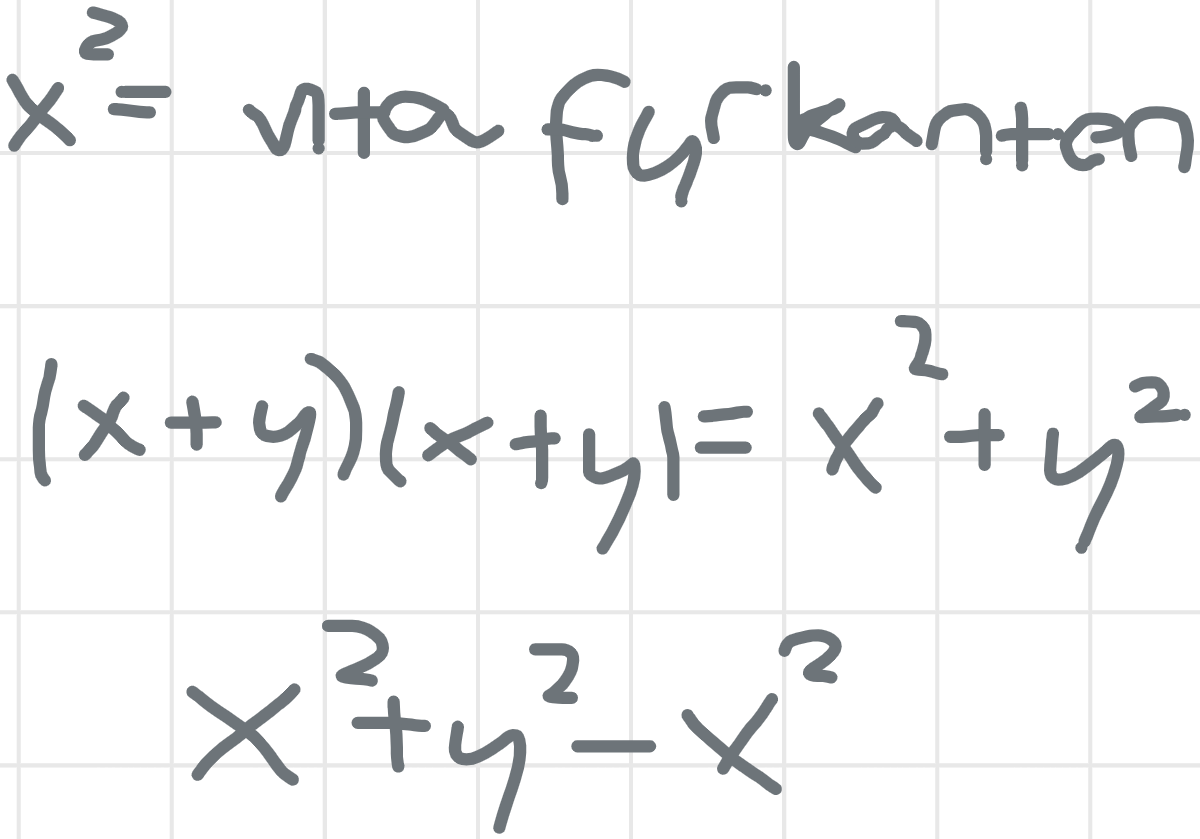 x² = vita fyrkanten
(x+y)(x+y) = x² + y²
x² + y² - x²